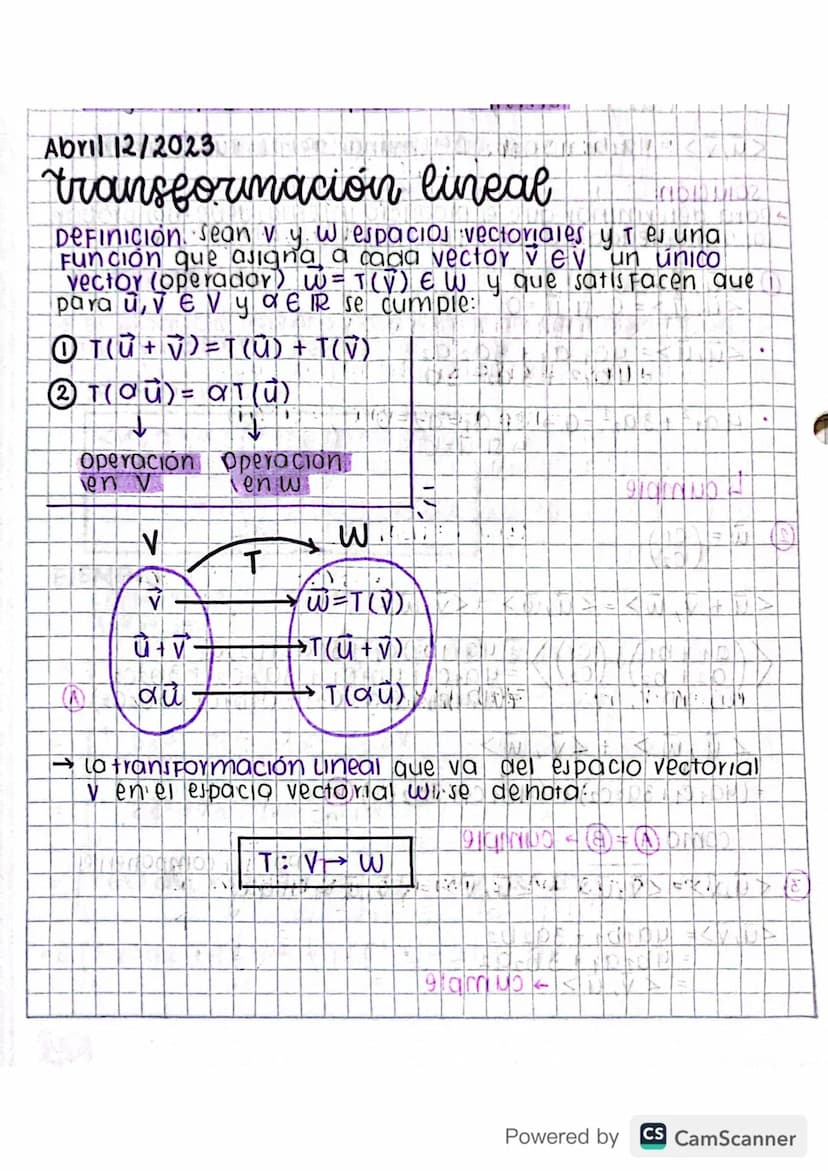 Abril 12/2023
transformación lineal
Definición. Sean V y W espacios vectoriales y T es una
Función que asigna a cada vector v⃗ ∈ V un único
vector (operador) w⃗ = T(v⃗) ∈ W y que satisfacen que
para u⃗, v⃗ ∈ V y α ∈ ℝ se cumple:
① T(u⃗ + v⃗) = T(u⃗) + T(v⃗)
② T(αu⃗) = αT(u⃗)
↓ ↓
operación operación
en V en W
V T W
v⃗ → w⃗=T(v⃗)
u⃗ + v⃗ → T(u⃗ + v⃗)
αu⃗ → T(αu⃗)
→ La transformación lineal que va del espacio vectorial
V en el espacio vectorial W se denota:
T: V → W
Powered by CS CamScanner